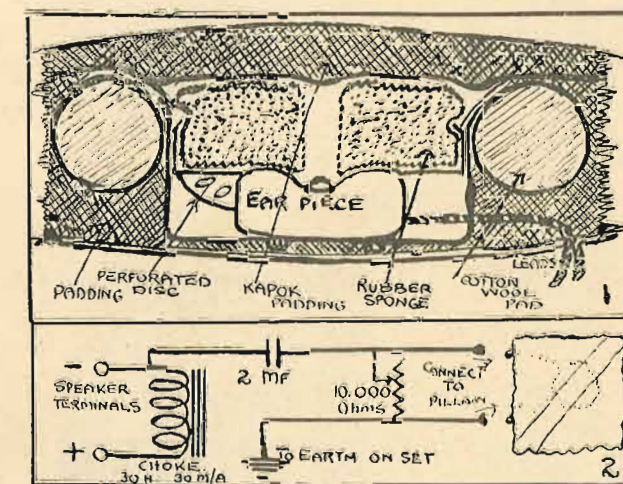 EAR PIECE
PADDING
PERFORATED
DISC
KAPOK
PADDING
RUBBER
SPONGE
COTTON
WOOL
PAD
LEADS
1
-
SPEAKER
TERMINALS
+
CHOKE
30 H 30 M/A
2 MF
10.000
Ohms
TO EARTH ON SET
CONNECT
TO
PILLOW
2